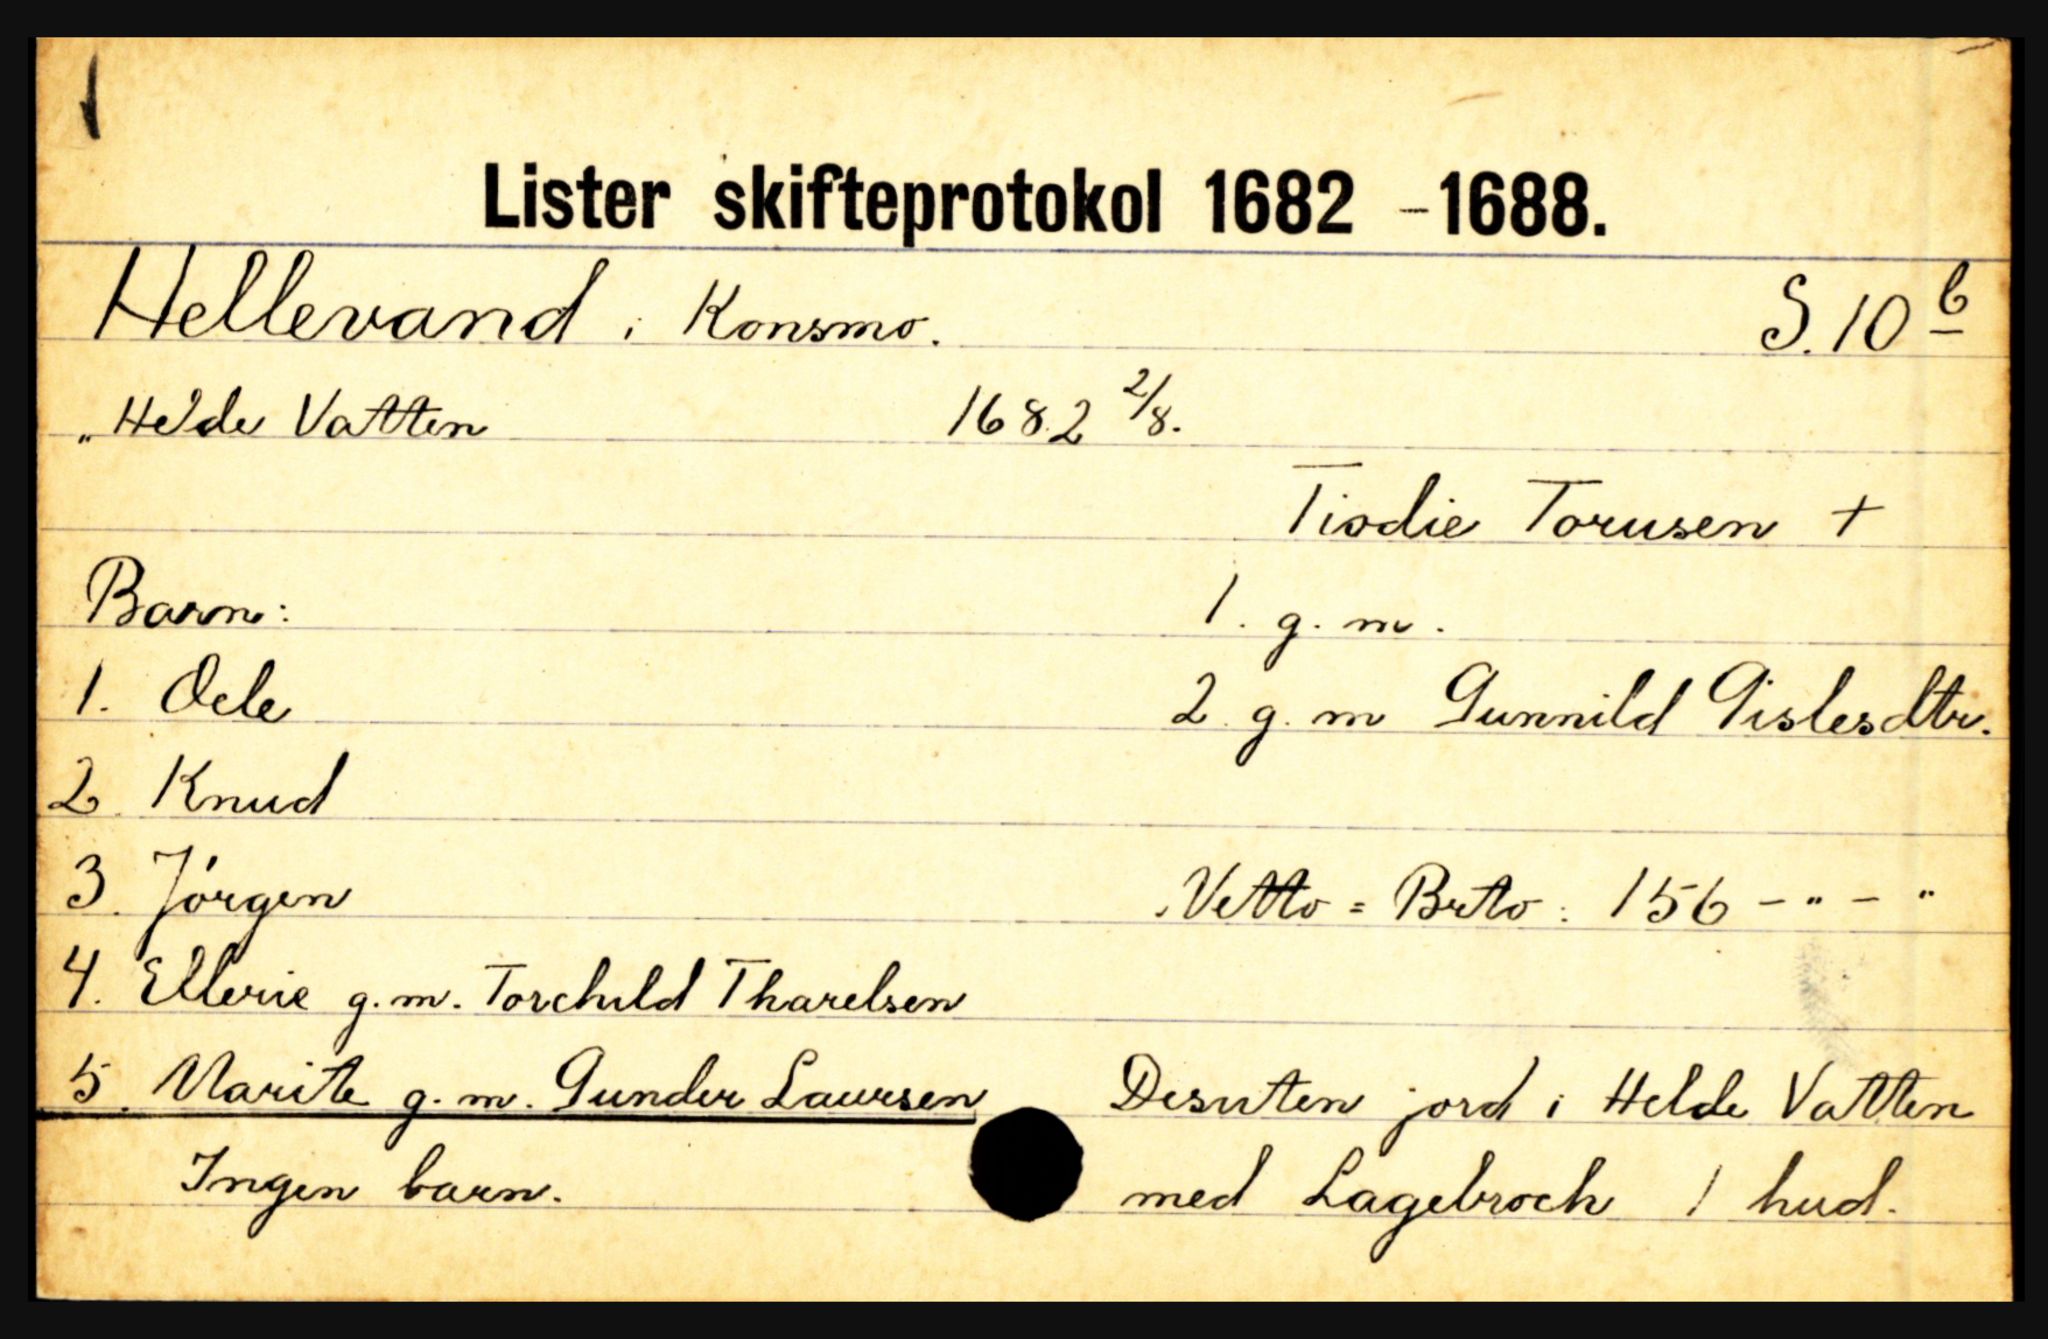 Lister skifteprotokol 1682 - 1688.
Hellevand i Konsmo. S. 10 b
„ Helde Vatten 1682 2/8.
Tiodie Torusen +
Barn: 1. g. m.
1. Oele 2. g. m Gunnild Gislesdtr.
2. Knud
3. Jörgen Netto = Brto: 156 - " - "
4. Ellerie g. m. Torchild Tharelsen
5. Marite g. m. Gunder Laursen Desuten jord i Helde Vatten
Ingen barn. med Lagebroch 1 hud.